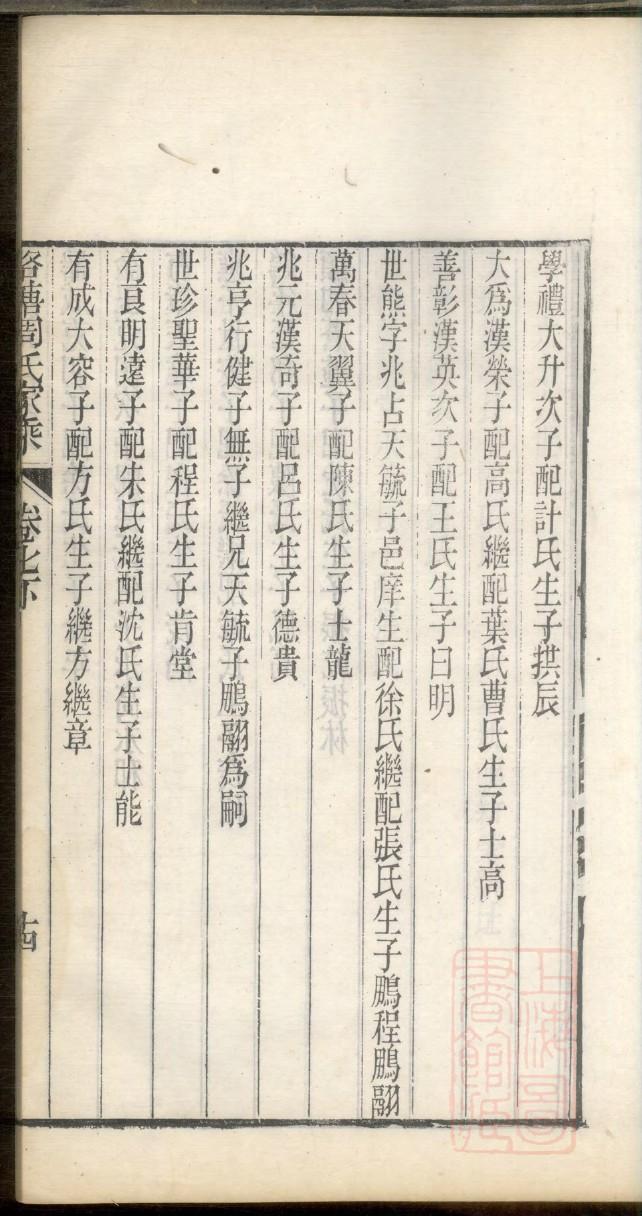 學禮大升次子配計氏生子拱辰
大爲漢榮子配高氏繼配葉氏曹氏生子士高
善彰漢英次子配王氏生子日明
世熊字兆占天毓子邑庠生配徐氏繼配張氏生子鵬程鵬翮
萬春天翼子配陳氏生子士龍
兆元漢奇子配呂氏生子德貴
兆亨行健子無子繼兄天毓子鵬翮爲嗣
世珍聖華子配程氏生子肯堂
有良明遠子配朱氏繼配沈氏生子士能
有成大容子配方氏生子繼方繼章
塘周氏家乘 卷七下 十四
上海圖書館藏